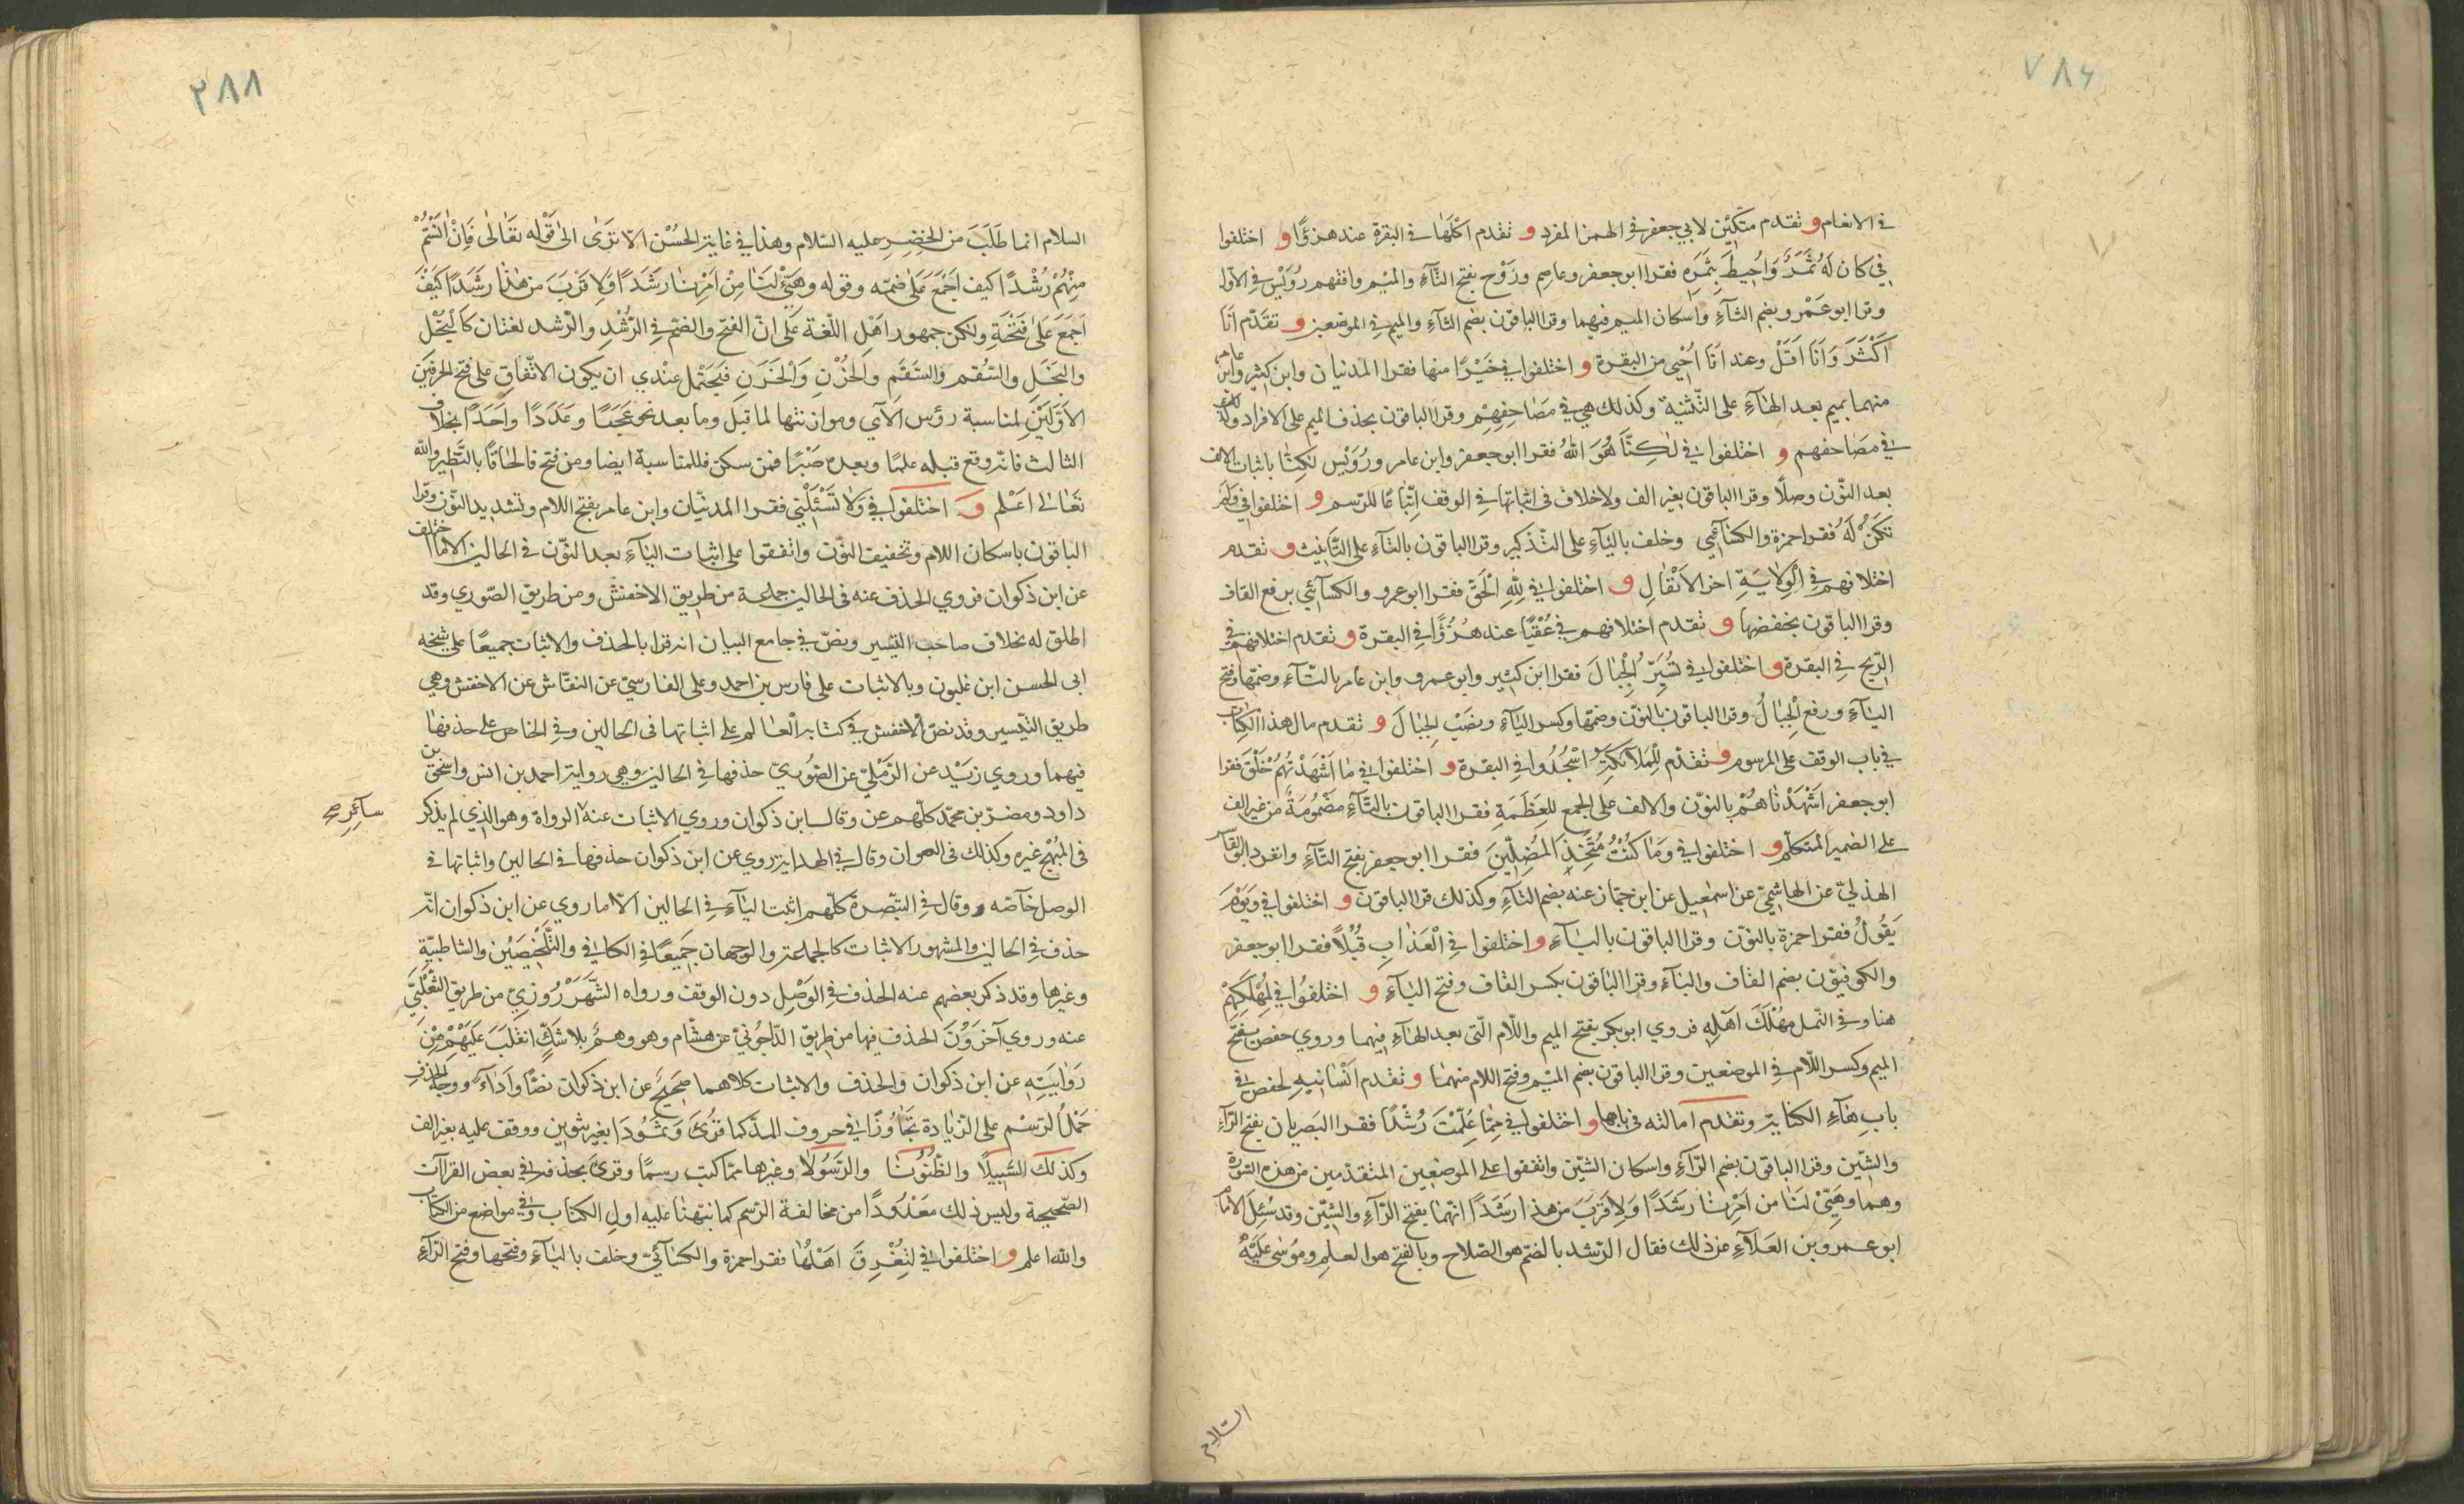 ٧٨٦
في الانعام و تقدم متكئين لابي جعفر في الهمز المفرد و تقدم اكلها في البقرة عند هزؤًا و اختلفوا
في كان له ثمر واحيط بثمره فقرا ابو جعفر وعاصم وروح بفتح الثاء والميم وافقهم رويس في الاول
وقرا ابو عمرو بضم الثاء واسكان الميم فيهما وقرا الباقون بضم الثاء والميم في الموضعين و تقدم انا
اكثر وانا اقل وعند انا احيى من البقرة و اختلفوا في خيرًا منها فقرا المدنيان وابن كثير وابن عامر
منهما بميم بعد الهاء على التثنية وكذلك هي في مصاحفهم وقرا الباقون بحذف الميم على الافراد وكذلك
في مصاحفهم و اختلفوا في لكنا هو الله فقرا ابو جعفر وابن عامر ورويس لكنا باثبات الالف
بعد النون وصلًا وقرا الباقون بغير الف ولاخلاف في اثباتها في الوقف اتباعًا للرسم و اختلفوا في ولم
تكن له فقرا حمزة والكسائي وخلف بالياء على التذكير وقرا الباقون بالتاء على التانيث و تقدم
اختلافهم في الولاية اخر الانفال و اختلفوا في لله الحق فقرا ابو عمرو والكسائي برفع القاف
وقرا الباقون بخفضها و تقدم اختلافهم في عقبًا عند هزؤًا في البقرة و تقدم اختلافهم في
الريح في البقرة و اختلفوا في نسير الجبال فقرا ابن كثير وابو عمرو وابن عامر بالتاء وضمها وفتح
الياء ورفع الجبال وقرا الباقون بالنون وضمها وكسر الياء ونصب الجبال و تقدم مال هذا الكتاب
في باب الوقف على المرسوم و تقدم للملائكة اسجدوا في البقرة و اختلفوا في ما اشهدتهم خلق فقرا
ابو جعفر اشهدناهم بالنون والالف على الجمع للعظمة فقرا الباقون بالتاء مضمومة من غير الف
على الضمير المتكلم و اختلفوا في وما كنت متخذ المضلين فقرا ابو جعفر بفتح التاء وانفرد ابو القاسم
الهذلي عن الهاشمي عن اسمعيل عن ابن جماز عنه بضم التاء وكذلك قرا الباقون و اختلفوا في ويوم
يقول فقرا حمزة بالنون وقرا الباقون بالياء و اختلفوا في العذاب قبلًا فقرا ابو جعفر
والكوفيون بضم القاف والباء وقرا الباقون بكسر القاف وفتح الباء و اختلفوا في لمهلكهم
هنا وفي النمل مهلك اهله فروي ابو بكر بفتح الميم واللام التي بعد الهاء فيهما وروي حفص بفتح
الميم وكسر اللام في الموضعين وقرا الباقون بضم الميم وفتح اللام منهما و تقدم انسانيه لحفص في
باب هاء الكناية وتقدم امالته في بابها و اختلفوا في مما علمت رشدًا فقرا البصريان بفتح الراء
والشين وقرا الباقون بضم الراء واسكان الشين واتفقوا على الموضعين المتقدمين من هذه السورة
وهما وهيئ لنا من امرنا رشدًا ولاقرب من هذا رشدًا انهما بفتح الراء والشين وقد سئل الامام
ابو عمرو بن العلاء عن ذلك فقال الرشد بالضم هو الصلاح وبالفتح هو العلم وموسى عليه
السلام
٢٨٨
السلام انما طلب من الخضر عليه السلام وهذا في غاية الحسن الا ترى الى قوله تعالى فان انستم
منهم رشدًا كيف اجمع على ضمه وقوله وهيئ لنا من امرنا رشدًا ولاقرب من هذا رشدًا كيف
اجمع على فتحه ولكن جمهور اهل اللغة على ان الفتح والضم في الرشد والرشد لغتان كالبخل
والبخل والسقم والسقم والحزن والحزن فيحتمل عندي ان يكون الاتفاق على فتح الحرفين
الاولين لمناسبة رؤس الآي وموازنتها لما قبل وما بعد نحو عجبًا وعددًا واحدًا بخلاف
الثالث فانه وقع قبله علمًا وبعده صبرًا فمن سكن فللمناسبة ايضا ومن فتح فالحاقًا بالنظير والله
تعالى اعلم و اختلفوا في ولا تسئلني فقرا المدنيان وابن عامر بفتح اللام وتشديد النون وقرا
الباقون باسكان اللام وتخفيف النون واتفقوا على اثبات الياء بعد النون في الحالين الا ما اختلف
عن ابن ذكوان فروي الحذف عنه في الحالين جماعة من طريق الاخفش ومن طريق الصوري وقد
اطلق له بخلاف صاحب التيسير ونص في جامع البيان انه قرا بالحذف والاثبات جميعًا على شيخه
ابى الحسن ابن غلبون وبالاثبات على فارس بن احمد وعلى الفارسي عن النقاش عن الاخفش وهي
طريق التيسير وقد نص الاخفش في كتابه العام على اثباتها في الحالين وفي الخاص على حذفها
فيهما وروي زيد عن الرملي عن الصوري حذفها في الحالين وهي رواية احمد بن انس واسحق بن
داود ومضر بن محمد كلهم عن وقال ابن ذكوان وروي الاثبات عنه الرواة وهو الذي لم يذكر
سائر صح
في المبهج غيره وكذلك في العنوان وقال في الهداية روي عن ابن ذكوان حذفها في الحالين واثباتها في
الوصل خاصه وقال في التبصرة كلهم اثبت الياء في الحالين الا ما روي عن ابن ذكوان انه
حذف في الحالين والمشهور الاثبات كالجماعة والوجهان جميعًا في الكافي والتلخيصين والشاطبية
وغيرها وقد ذكر بعضهم عنه الحذف في الوصل دون الوقف ورواه الشهرزوري من طريق التغلبي
عنه وروي آخرون الحذف فيها من طريق الداجوني عن هشام وهو وهم بلا شك انقلب عليهم من
روايته عن ابن ذكوان والحذف والاثبات كلاهما صحيح عن ابن ذكوان نصًا واداء ووجه الحذف
حمل الرسم على الزيادة تجاوزًا في حروف المد كما قرئ وثمودا بغير تنوين ووقف عليه بغير الف
وكذلك السبيلا والظنونا والرسولا وغيرها مما كتب رسمًا وقرئ بحذفه في بعض القراآت
الصحيحة وليس ذلك معدودًا من مخالفة الرسم كما نبهنا عليه اول الكتاب وفي مواضع من الكتاب
والله اعلم و اختلفوا في لتغرق اهلها فقرا حمزة والكسائي وخلف بالياء وفتحها وفتح الراء